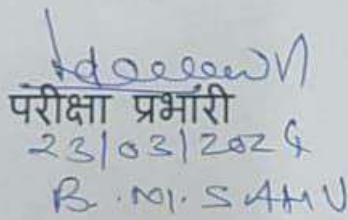 परीक्षा प्रभारी
23/03/2024
B.M. SAHU